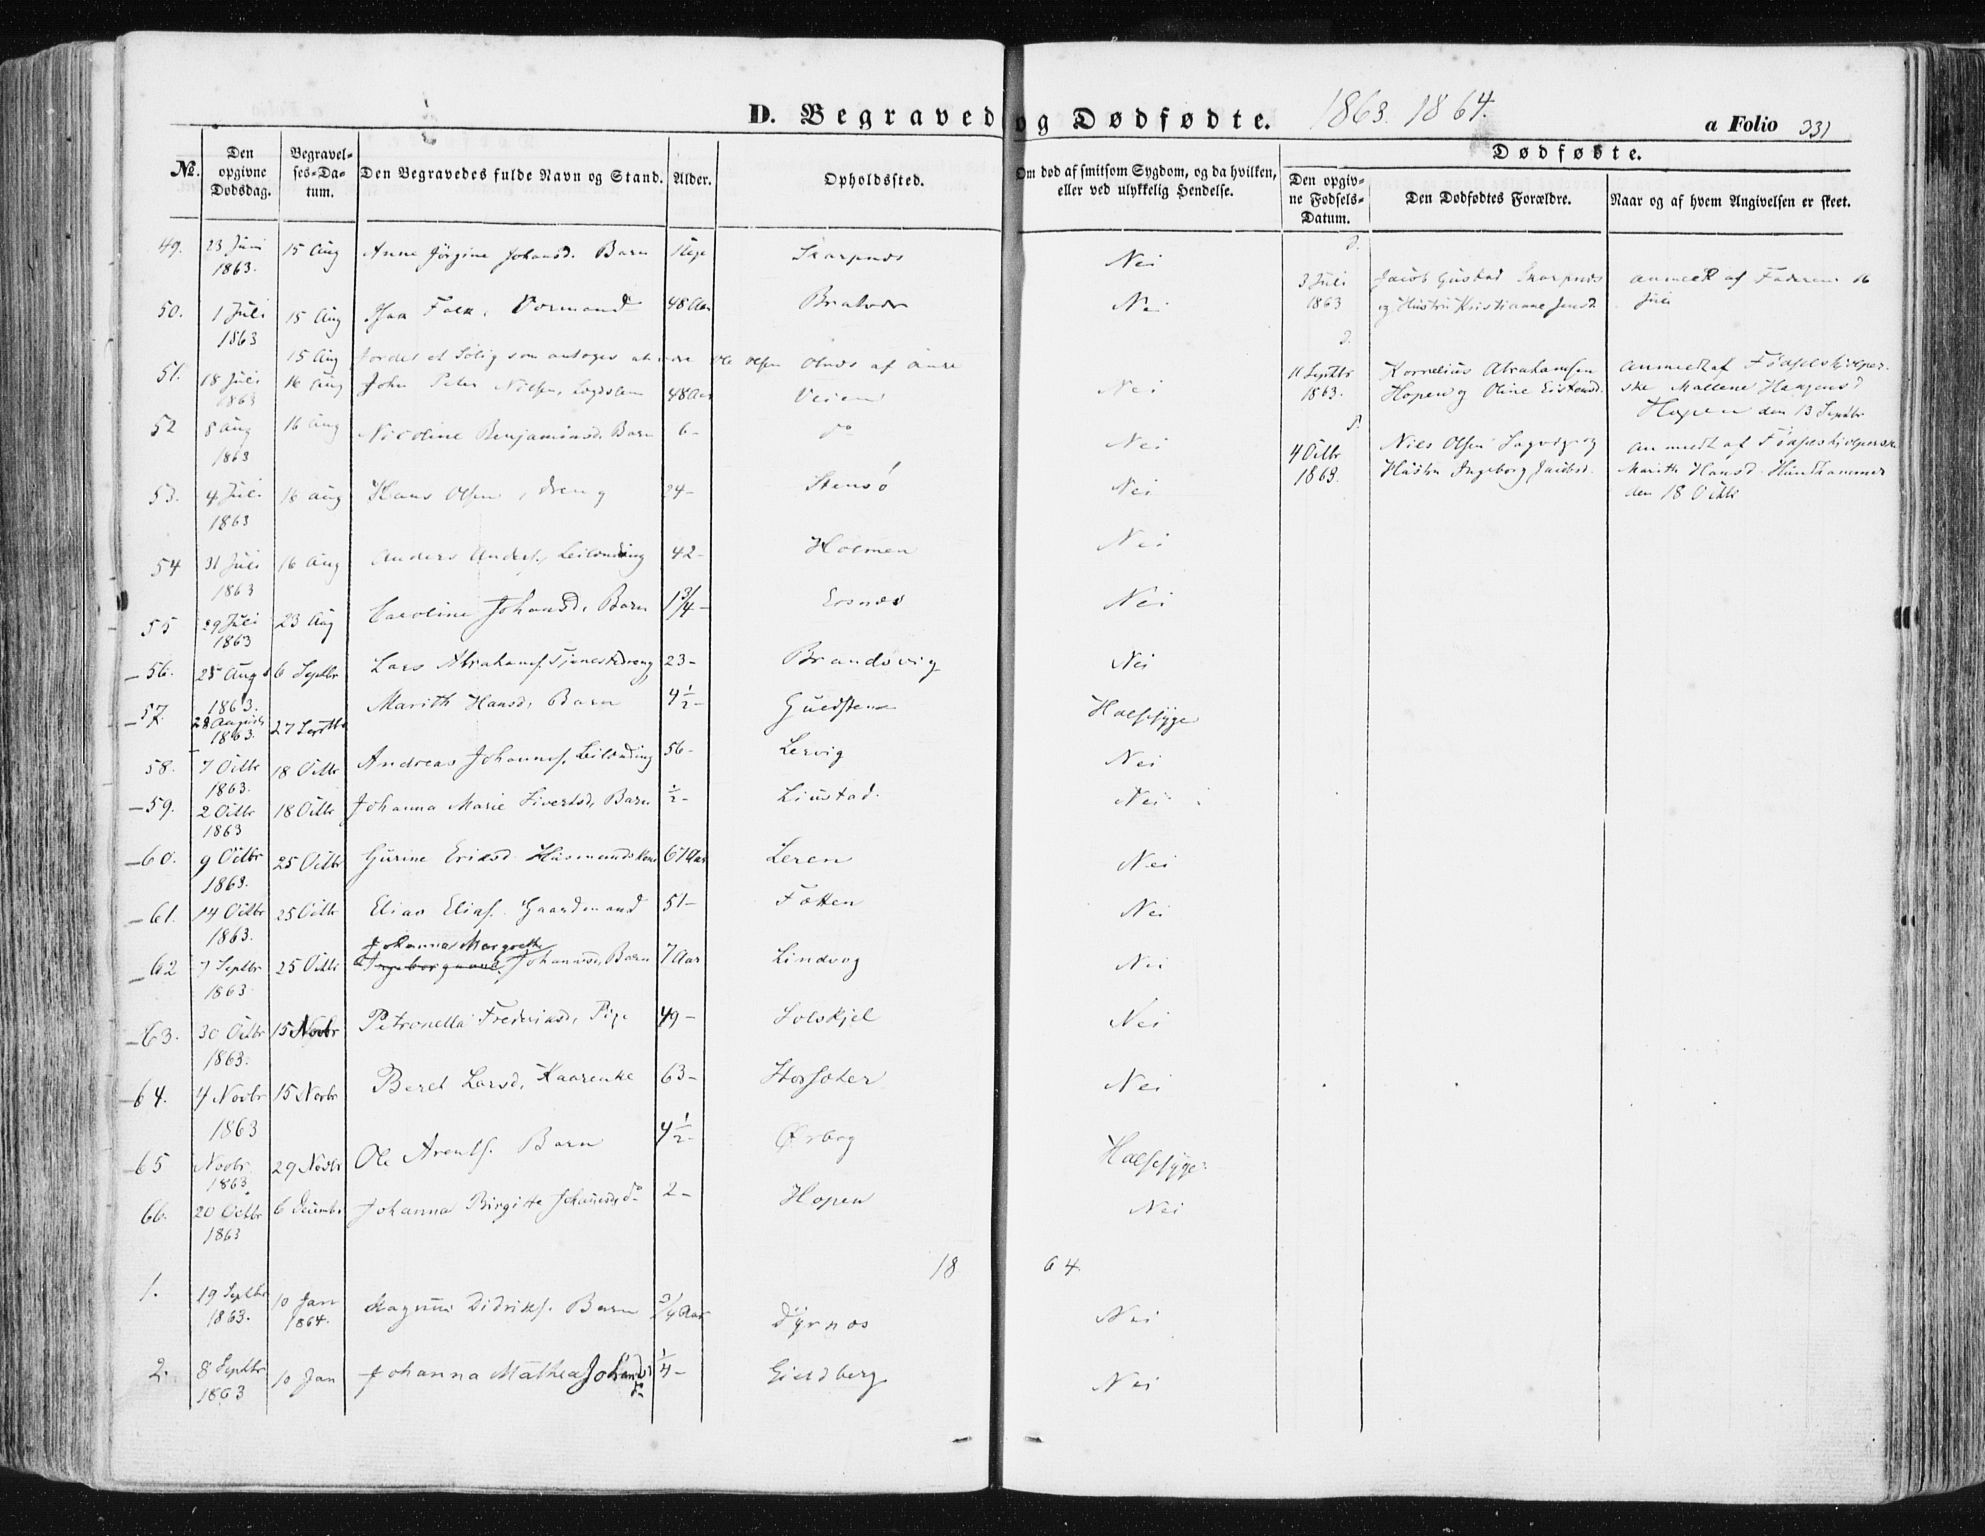 D. Begravede og Dødfødte. 1863. 1864.
a Folio 331
No. Den opgivne Dødsdag. Begravelses-Datum. Den Begravedes fulde Navn og Stand. Alder. Opholdssted. Om død af smitsom Sygdom, og da hvilken, eller ved ulykkelig Hendelse.
Dødfødte.
Den opgivne Fødsels-Datum. Den Dødfødtes Forældre. Naar og af hvem Angivelsen er skeet.
49. 23 Juni 1863. 15 Aug Anne Jørgine Johansd. Barn Skarpnes Nei
50. 1 Juli 1863 15 Aug Falk, 48 Aar Nei
15 Aug Jordet et Liig som antages at være Ole Olsen Olnes af Aure
51. 18 Juli 1863 16 Aug John Peter Nilsen, 48 Aar Veien Nei
52 8 Aug 1863 16 Aug Nicoline Benjaminsd. Barn 6- do Nei
53. 4 Juli 1863 16 Aug Hans Olsen, Dreng 24- Stensø Nei
54 31 Juli 1863 16 Aug Anders Anders. Leilending 42- Holmen Nei
55 29 Juli 1863 23 Aug Caroline Johansd. Barn 1 3/4- Nei
56. 25 Aug 1863. 6 Septbr Lars Abrahams. Tjenestedreng 23- Brandsvig Nei
57. 28 August 1863. 27 Septbr Marith Hansd. Barn 4 1/2- Halssyge
58. 7 Octbr 1863. 18 Octbr Andreas Johannes. Leilending 56- Lervig Nei
59. 2 Octbr 1863 18 Octbr Johanna Marie Sivertsd. Barn 1/2- Liustad Nei
60. 9 Octbr 1863. 25 Octbr Gurine Eriksd. Husmandskone 67 Aar Leren Nei
61. 14 Octbr 1863. 25 Octbr Elias Elias. Gaardmand 51- Fætten Nei
62 7 Septbr 1863. 25 Octbr Johanna Margrethe Johannesd. Barn 7 Aar Lindvog Nei
63. 30 Octbr 1863. 15 Novbr Petronella Frederiksd. Pige 49- Solskjel Nei
64. 4 Novbr 1863 15 Novbr Beret Larsd. Kaarenke 63- Nei
65 Novbr. 1863. 29 Novbr Ole Arents. Barn 4 1/2- Ørbog Halssyge
66. 20 Octbr 1863 6 Decembr Johanna Birgitte Johansd. do 2- Hopen Nei
1864.
1. 19 Septbr 1863. 10 Jan 1864. Magnus Didriks. Barn 3/4 Aar Dyrnes Nei
2. 8 Septbr 1863 10 Jan Johanna Mathea Johansd do 1/4- Gieldberg Nei
D. 3 Juli 1863 Jacob Gustad Skarpnes og Hustru Kristianne Jensd. Anmeldt af Faderen 16 Juli
D. 11 Septbr 1863. Kornelius Abrahamsen Hopen og Oline Eistensd. Anmeldt af Fødselshjelperske Mallene Haagensd Hopen den 13 Septbr
D. 4 Octbr 1863. Niels Olsen Sagvig og Hustru Ingeborg Jacobsd. Anmeldt af Fødselshjelperske Marith Hansd. Hundhammer den 18 Octbr